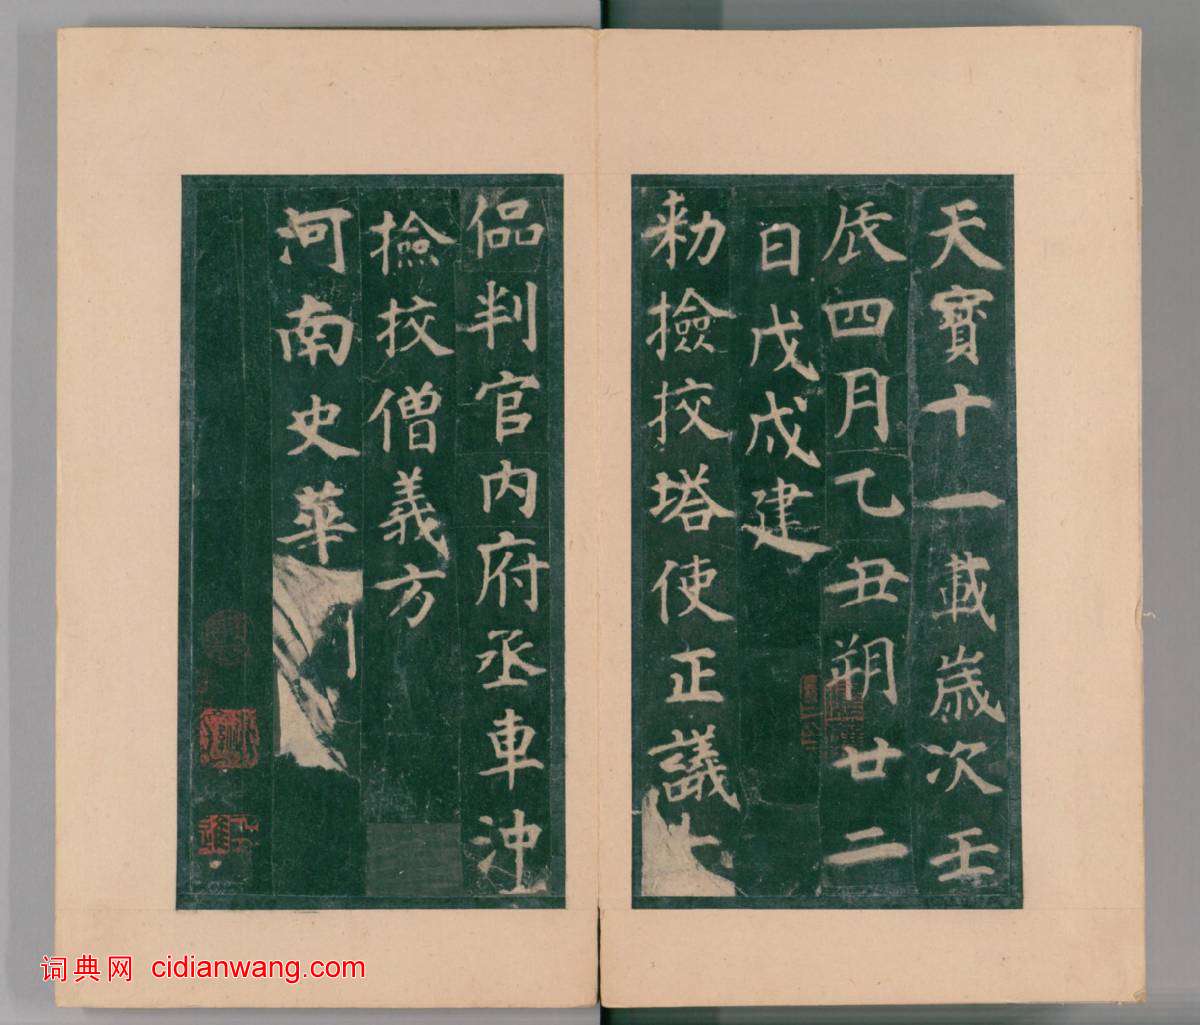 天寶十一載歲次壬
辰四月乙丑朔廿二
日戊戍建
勑撿挍塔使正議大
伾判官内府丞車沖
撿挍僧義方
河南史華刻
词典网 cidianwang.com